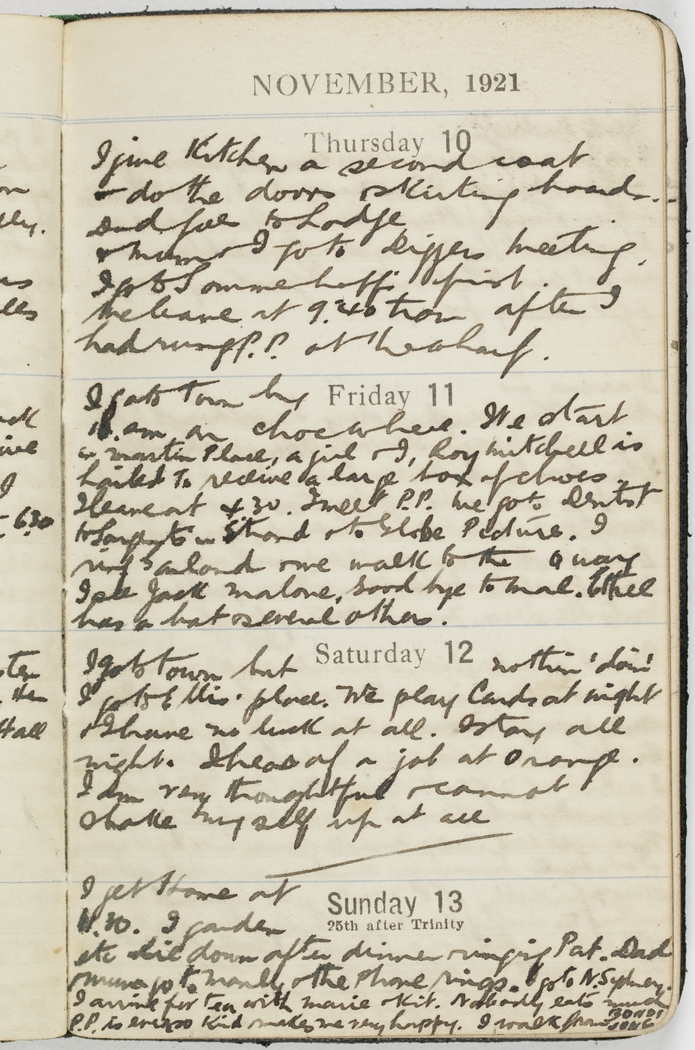 NOVEMBER, 1921
Thursday 10
I give Kitchen a second coat
& do the doors & skirting boards.
Dad goes to Lodge
& Mum & I go to Diggers meeting.
I go to first.
We leave at 9.40 tram after I
had rung P.P. at the wharf.
Friday 11
I go to Town by
am on choc wheel. We start
in Martin Place, a girl & I, Roy Mitchell is
to receive a large box of chocs.
I leave at 4.30. I meet P.P. we go to Dentist
to Sargents in Strand & to Globe Picture. I
ring and we walk to the Quay
I see Jack Malone, Good bye to Mal. Ethel
has a hat & several others.
Saturday 12
I go to town but nothin' doin'
I go to Ellis' place. We play Cards at night
& I have no luck at all. I stay all
night. I hear of a job at Orange.
I am very thoughtful & cannot
shake myself up at all
Sunday 13
25th after Trinity
I get Home at
11.30. I garden
etc lie down after dinner ringing Pat. Dad
& Mum go to Manly & the Phone rings. I go to N. Sydney.
I arrive for tea with Marie & Kit. Nobody eats much
P.P. is ever so kind makes me very happy. I walk from BONDI
JUNC
ck
ive
I
630
Hall